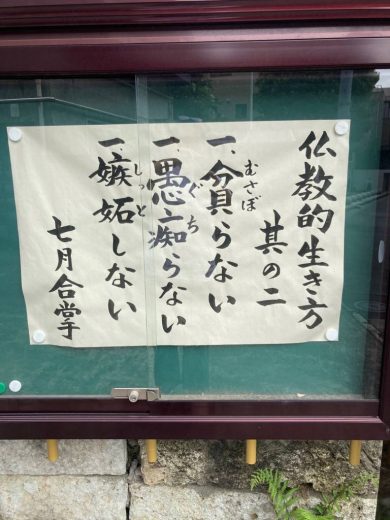 仏教的生き方
其の二
一、貪らない
むさぼ
一、愚痴らない
ぐち
一、嫉妬しない
しっと
七月合掌